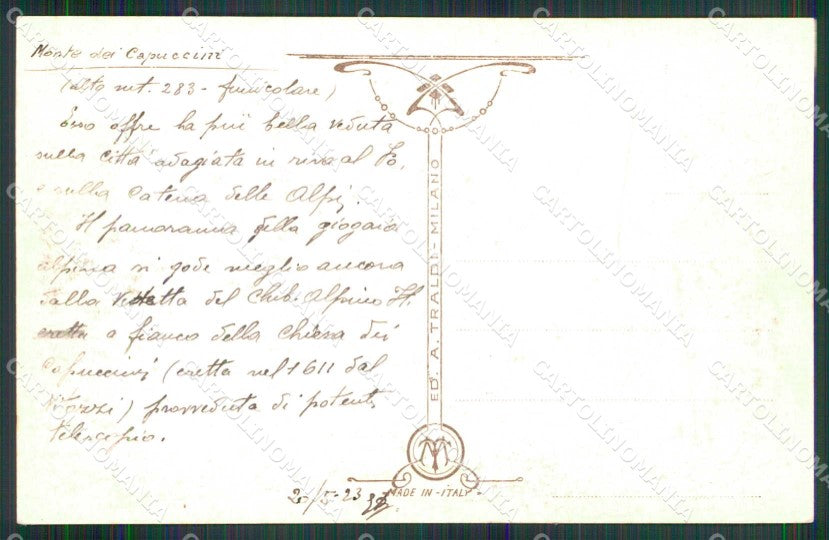 Monte dei Capuccini
(alto mt. 283 - funicolare)
Esso offre la più bella veduta
sulla città adagiata in riva al Po,
e sulla catena delle Alpi.
Il panorama della giogaia
alpina si gode meglio ancora
dalla vedetta del Club. Alpino It.
eretta a fianco della Chiesa dei
Capuccini (eretta nel 1611 dal
Vitozzi) provveduta di potente
telescopio.
23
ED. A. TRALDI - MILANO
MADE IN - ITALY
CARTOLINOMANIA